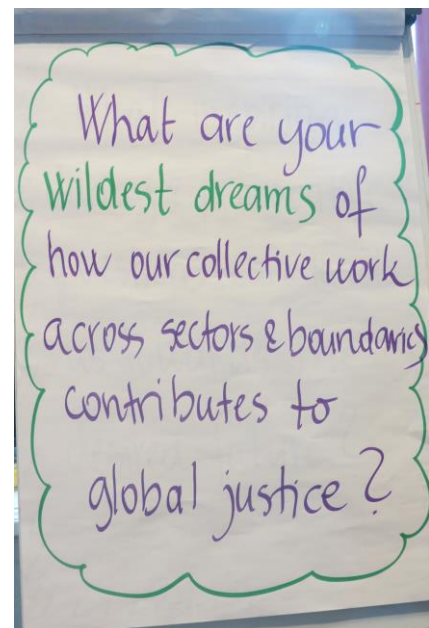 What are your
wildest dreams of
how our collective work
across sectors & boundaries
contributes to
global justice?